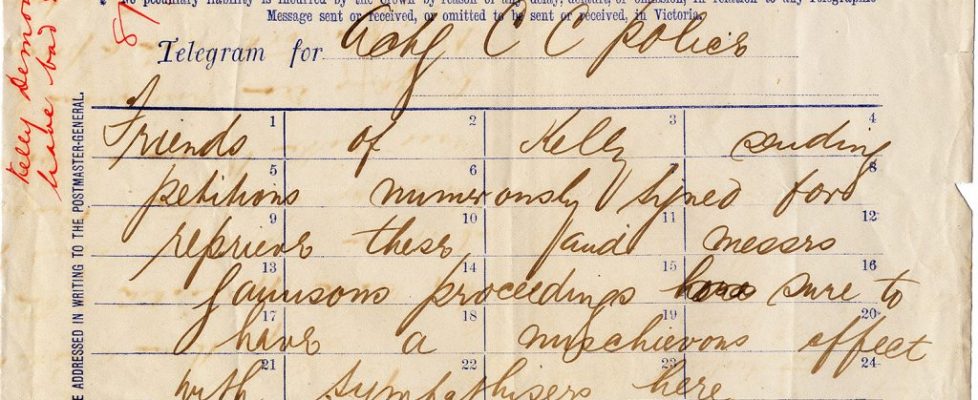 No pecuniary liability is incurred by the Crown by reason of any delay, default, or omission, in any Telegraphic
Message sent or received, or omitted to be sent or received, in Victoria.
Telegram for Actg C C police
Friends 1 of 2 Kelly 3 sending 4
petitions 5 numerously 6 signed for 8
reprieve 9 these 10 and 11 messrs 12
Gaunsons 13 proceedings 14 15 sure to 16
have 17 a 18 mischievous 19 effect 20
with 21 sympathisers here 22 24
Kelly
have bad
E ADDRESSED IN WRITING TO THE POSTMASTER-GENERAL.